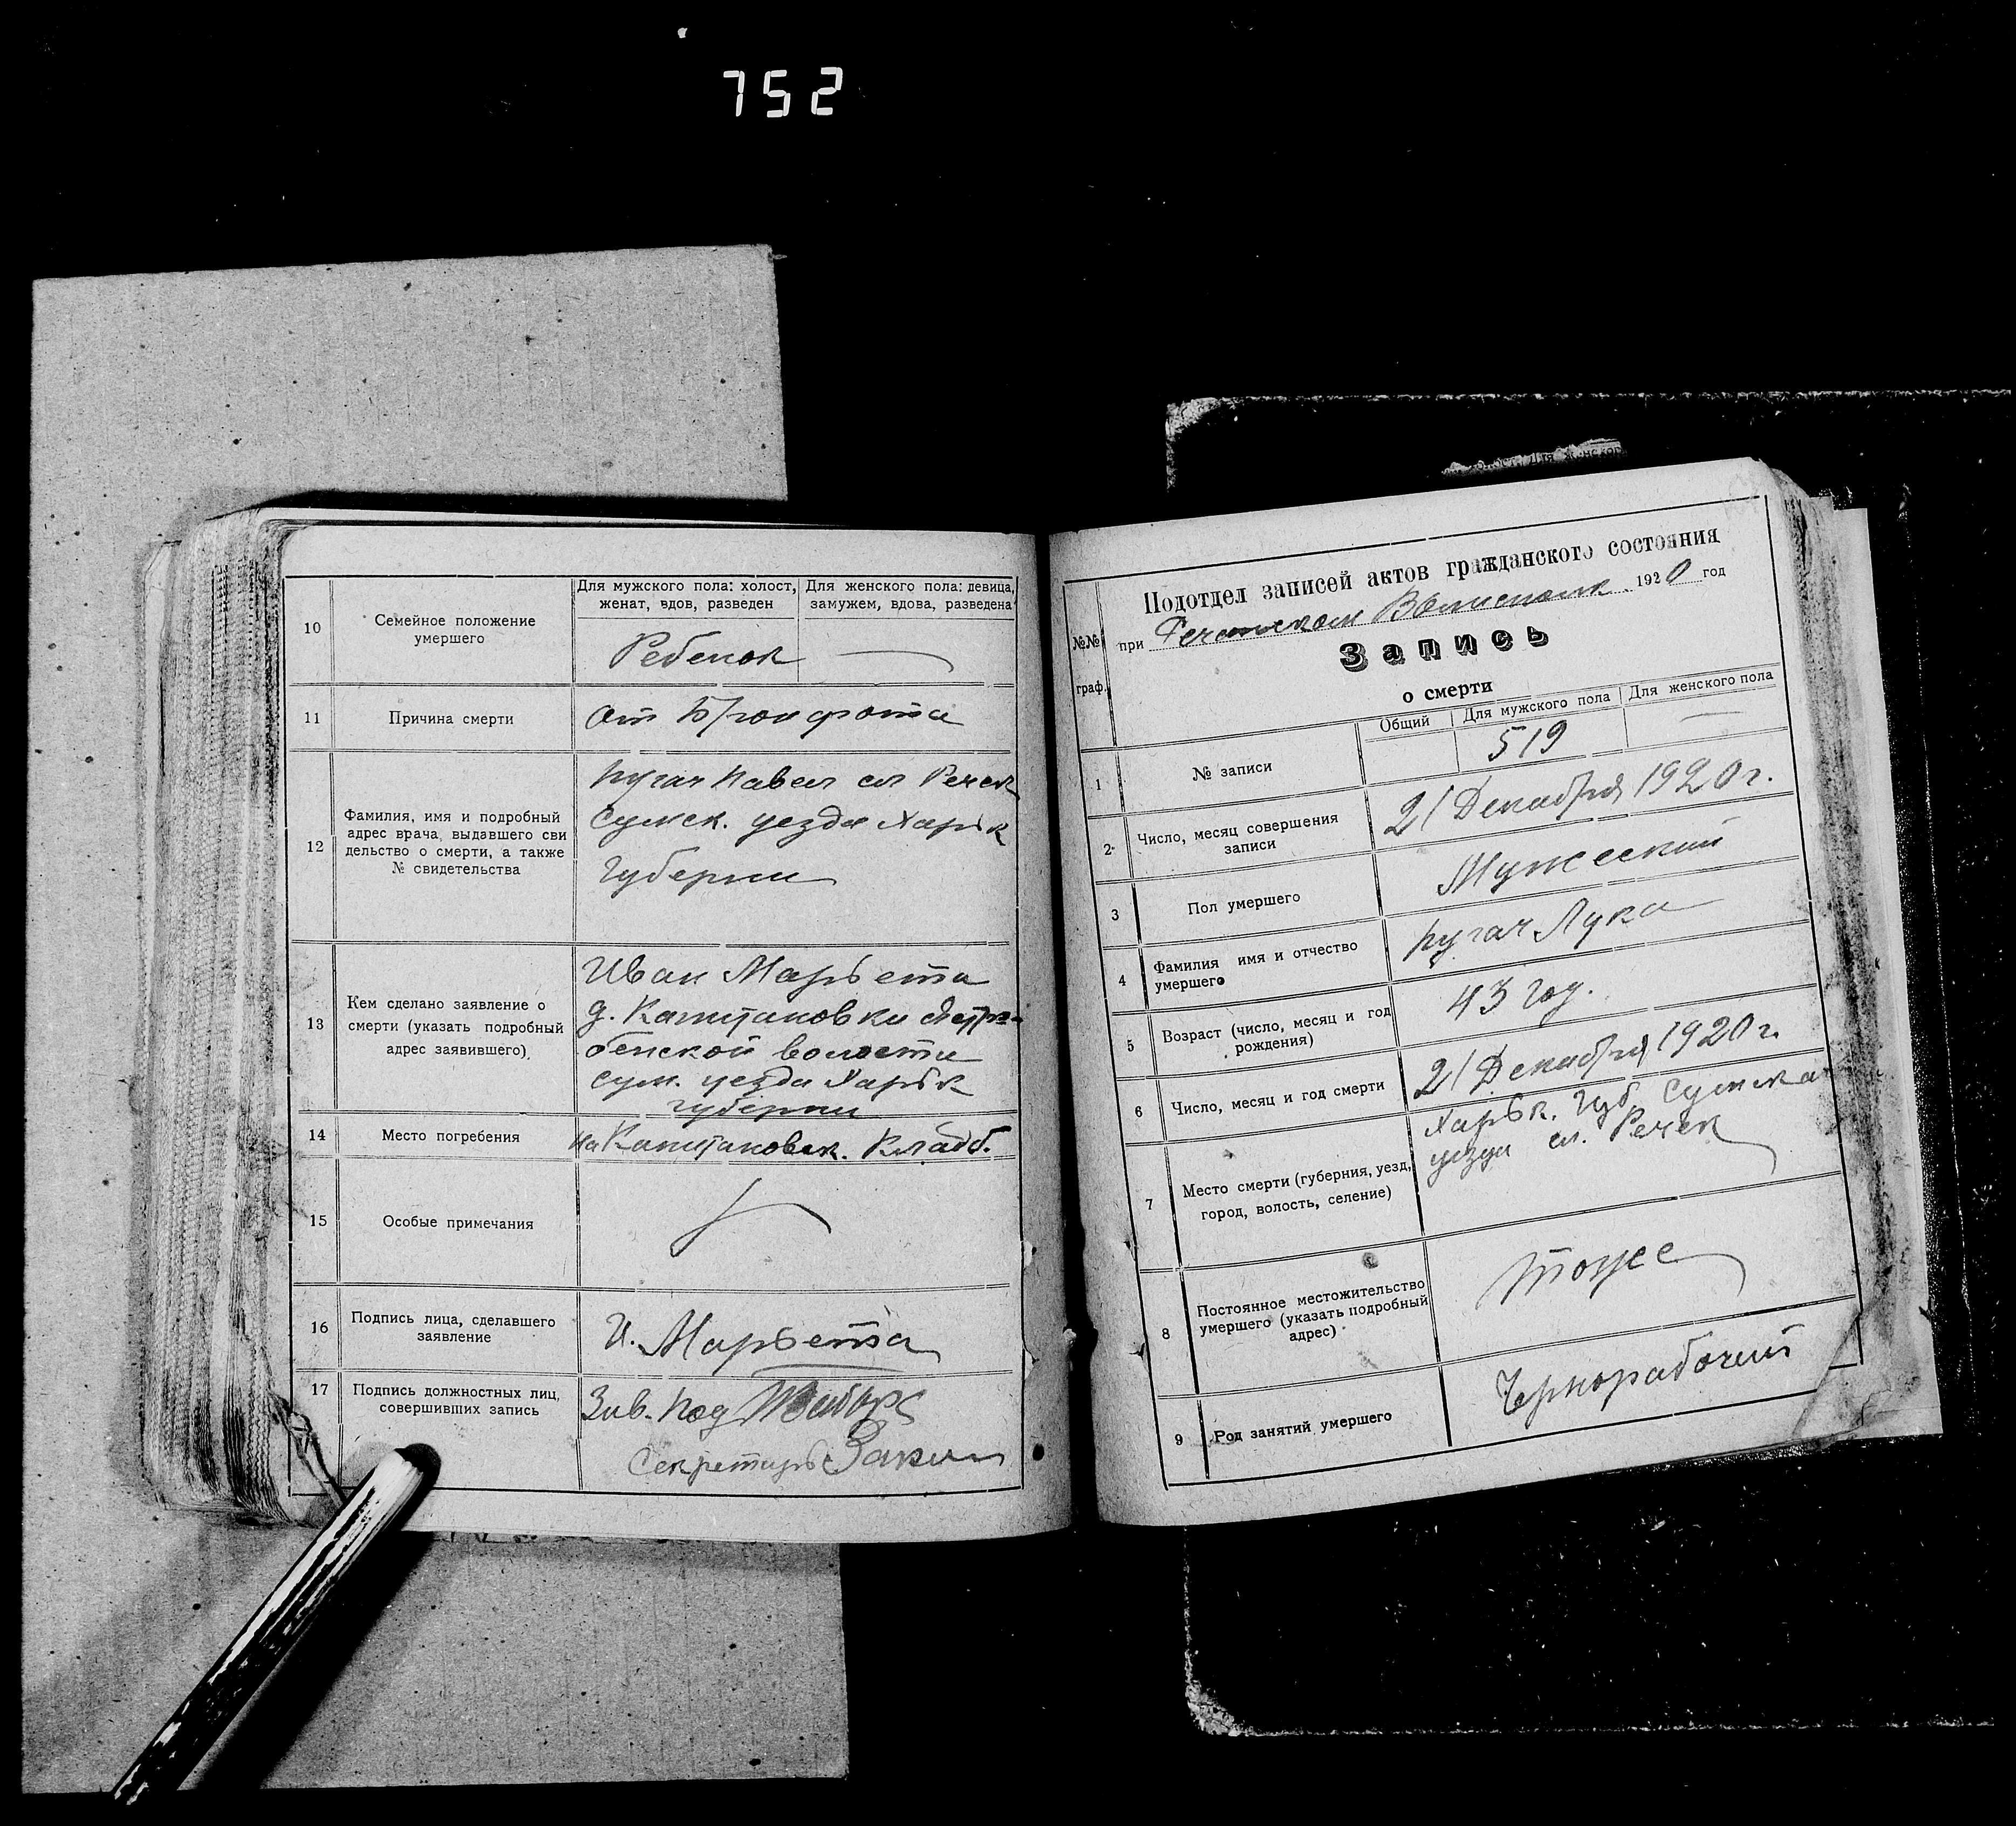 752
10
Семейное положение
умершего
Для мужского пола: холост,
женат, вдов, разведен
Для женского пола: девица,
замужем, вдова, разведена
Ребенок
11
Причина смерти
от
12
Фамилия, имя и подробный
адрес врача, выдавшего сви
дельство о смерти, а также
№ свидетельства
Пугач Павел сл Речек
Сумск. уезда Харьк
Губернии
13
Кем сделано заявление о
смерти (указать подробный
адрес заявившего)
Иван Марьета
д. Капитановки
бенской волости
сум. уезда Харьк
губернии
14
Место погребения
на Капитановск. Кладб.
15
Особые примечания
16
Подпись лица, сделавшего
заявление
И. Марьета
17
Подпись должностных лиц,
совершивших запись
Зав. Под
Секретарь
№№
граф.
Подотдел записей актов гражданского состояния
при Речанском Волисполк. 1920 год
Запись
о смерти
Общий
Для мужского пола
Для женского пола
1
№ записи
519
2
Число, месяц совершения
записи
21 Декабря 1920 г.
3
Пол умершего
Мужеский
4
Фамилия имя и отчество
умершего
Пугач Лука
5
Возраст (число, месяц и год
рождения)
43 год.
6
Число, месяц и год смерти
21 Декабря 1920 г.
7
Место смерти (губерния, уезд,
город, волость, селение)
Харьк. Губ. Сумска
уезда сл. Речек
8
Постоянное местожительство
умершего (указать подробный
адрес)
тоже
9
Род занятий умершего
Чернорабочий